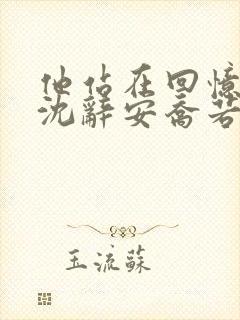 他站在回憶
沈辭安喬若
玉流蘇